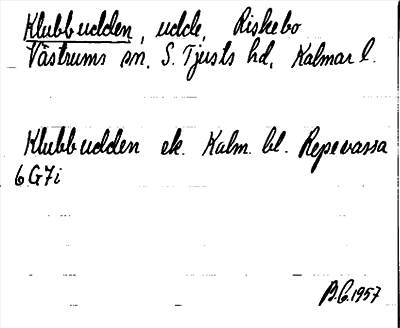 Klubbudden, udde, Riskebo
Västrums sn, S. Tjusts hd, Kalmar l.
Klubbudden ek. Kalm. bl. Repevassa
6G7i
B.C. 1957